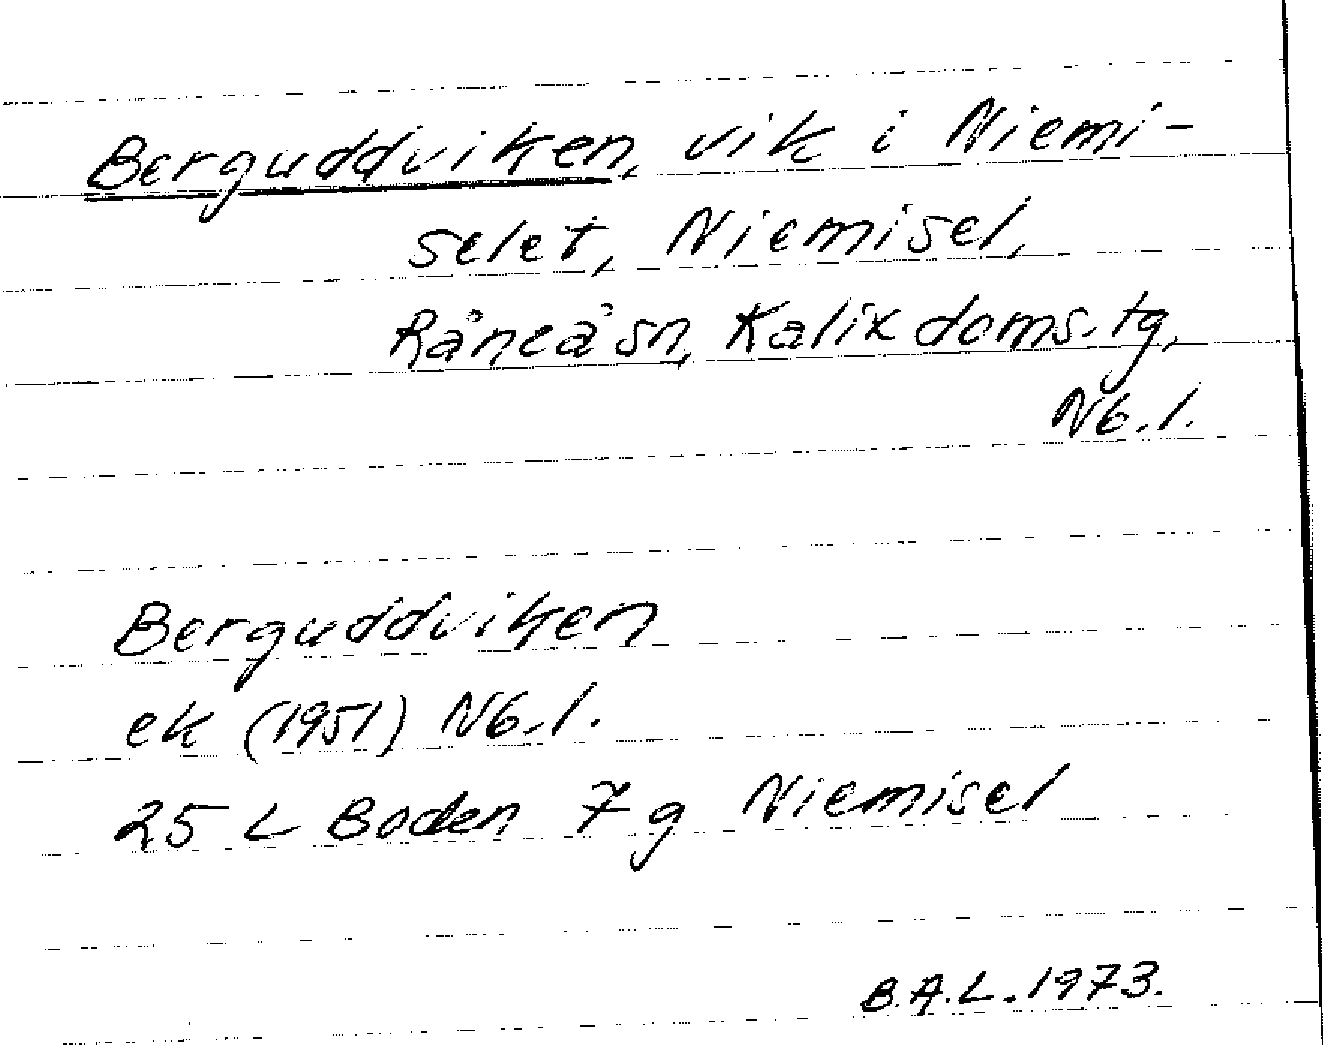 Berguddviken, vik i Niemi-
selet, Niemisel,
Råneå sn, Kalix doms. tg,
Nb. l.
Berguddviken
ek (1951) Nb. l.
25 L Boden 7 g Niemisel
B.A.L. 1973.